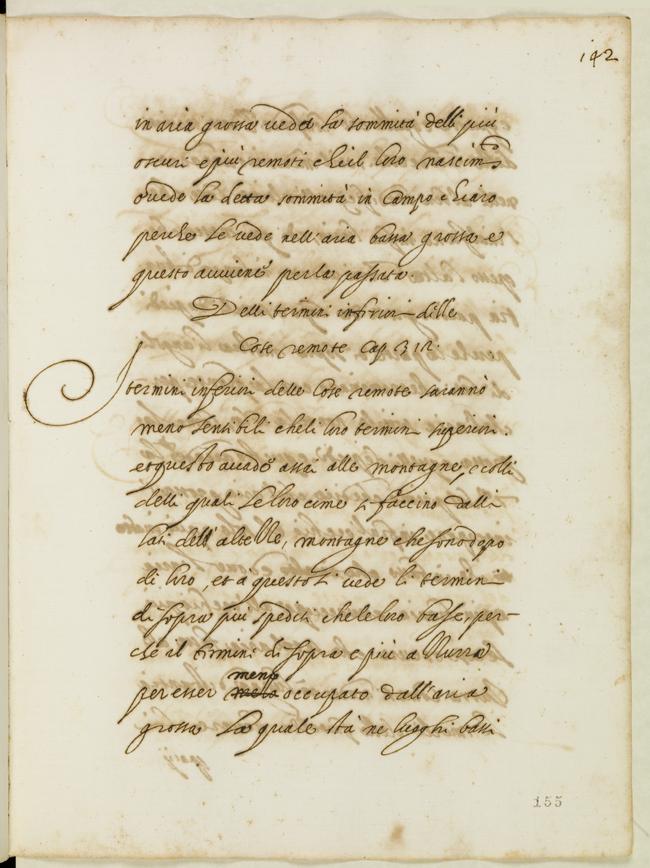 142
in aria grossa vede la sommità delli più
oscuri e più remoti che il loro nascim.to
o vede la detta sommità in campo chiaro
perche le vede nell'aria bassa grossa e
questo avviene per la passata.
Delli termini inferiori delle
Cose remote Cap. 312.
I termini inferiori delle Cose remote saranno
meno sensibili che li loro termini superiori.
et questo accade assai alle montagne, e colli
delli quali le loro cime si faccino dalli
lati dell'altre, montagne che sono dopo
di loro, et a questo si vede li termini
di sopra più spediti che le loro base, per-
che il termini di sopra e più
per esser meno occupato dall'aria
grossa la quale stà ne luoghi bassi
155